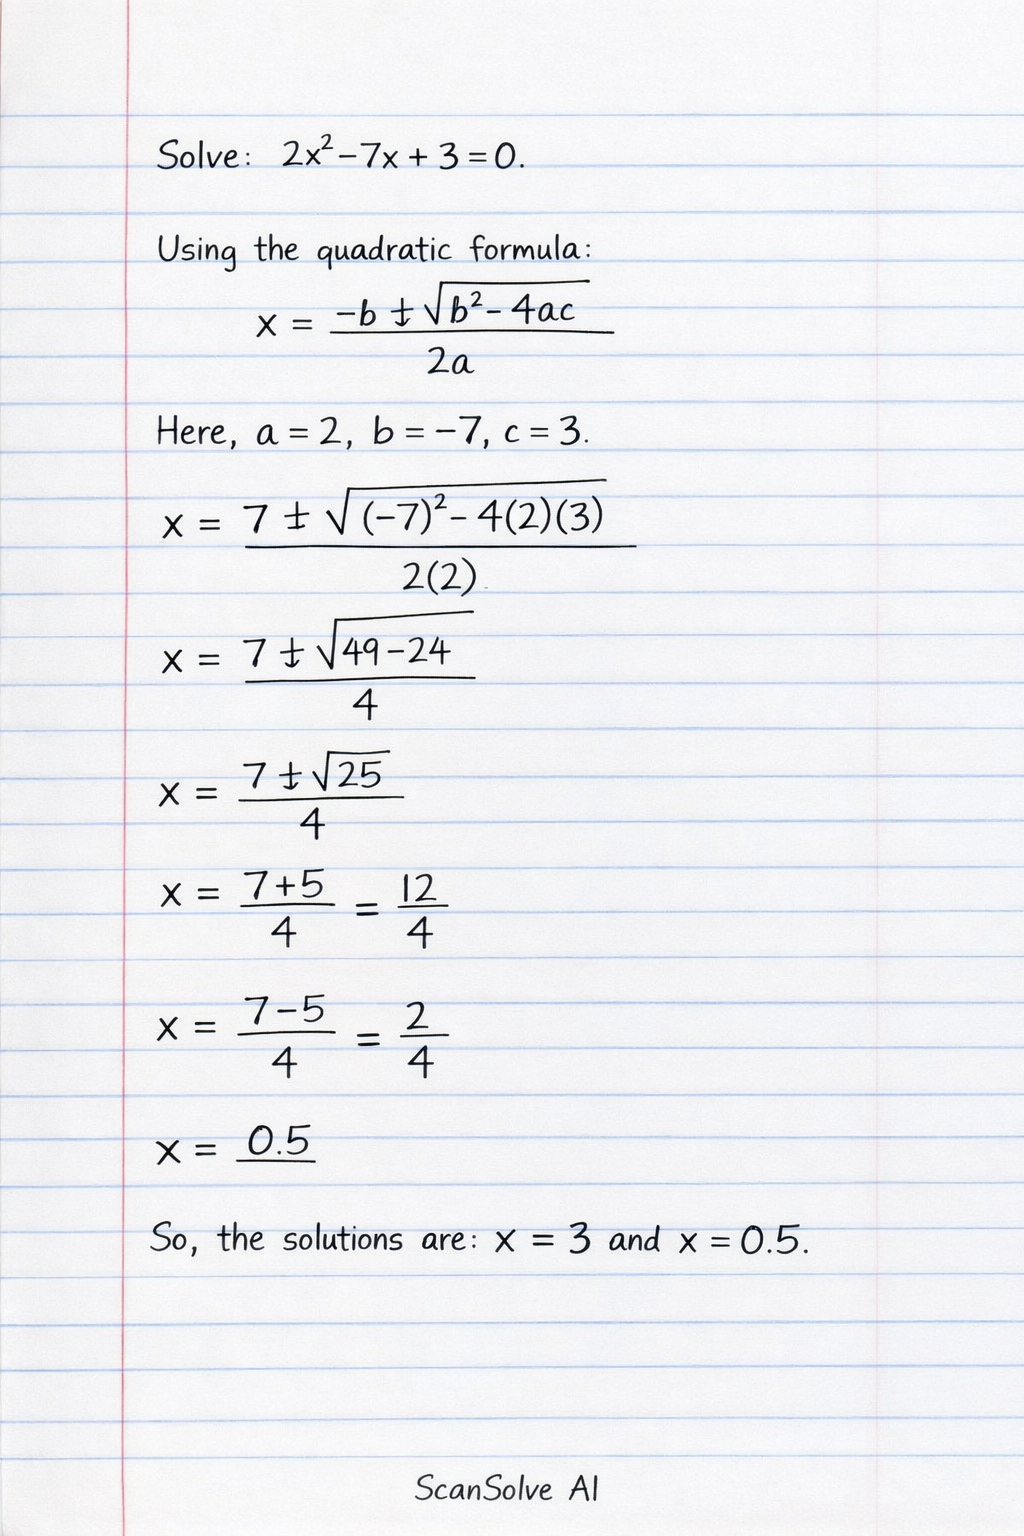 Solve: 2x² − 7x + 3 = 0.
Using the quadratic formula:
x = (−b ± √(b² − 4ac)) / 2a
Here, a = 2, b = −7, c = 3.
x = (7 ± √((−7)² − 4(2)(3))) / 2(2)
x = (7 ± √(49 − 24)) / 4
x = (7 ± √25) / 4
x = (7+5)/4 = 12/4
x = (7−5)/4 = 2/4
x = 0.5
So, the solutions are: x = 3 and x = 0.5.
ScanSolve AI